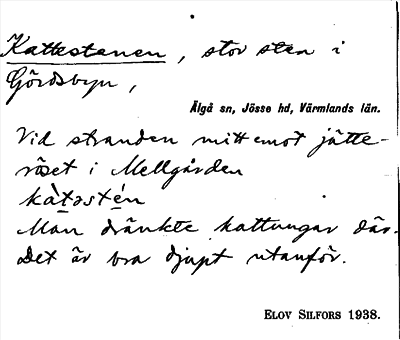 Kattestenen, stor sten i
Gördsbyn,
Älgå sn, Jösse hd, Värmlands län.
Vid stranden mitt emot jätte-
röset i Mellgården
kàtəstén
Man dränkte kattungar där.
Det är bra djupt utanför.
ELOV SILFORS 1938.